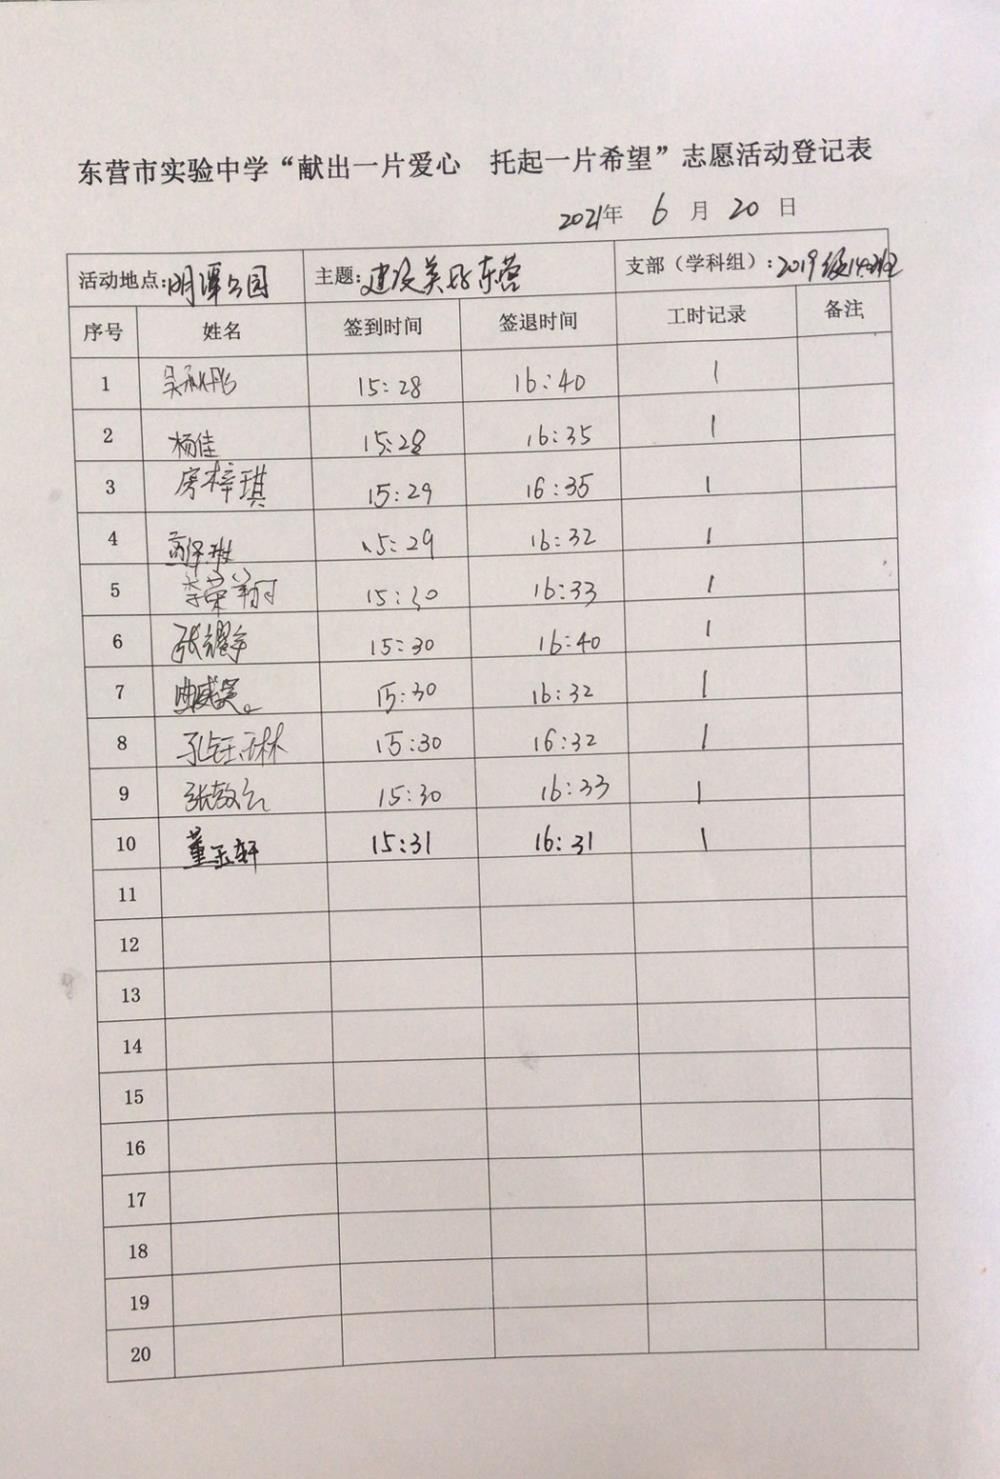 东营市实验中学“献出一片爱心 托起一片希望”志愿活动登记表
2021年 6 月 20 日
活动地点:明潭公园 主题:建设美好东营 支部（学科组）:2019级14班
序号 姓名 签到时间 签退时间 工时记录 备注
1 15:28 16:40 1
2 杨佳 15:28 16:35 1
3 房梓琪 15:29 16:35 1
4 15:29 16:32 1
5 李荣 15:30 16:33 1
6 张 15:30 16:40 1
7 15:30 16:32 1
8 孔钰琳 15:30 16:32 1
9 张 15:30 16:33 1
10 董玉轩 15:31 16:31 1
11
12
13
14
15
16
17
18
19
20